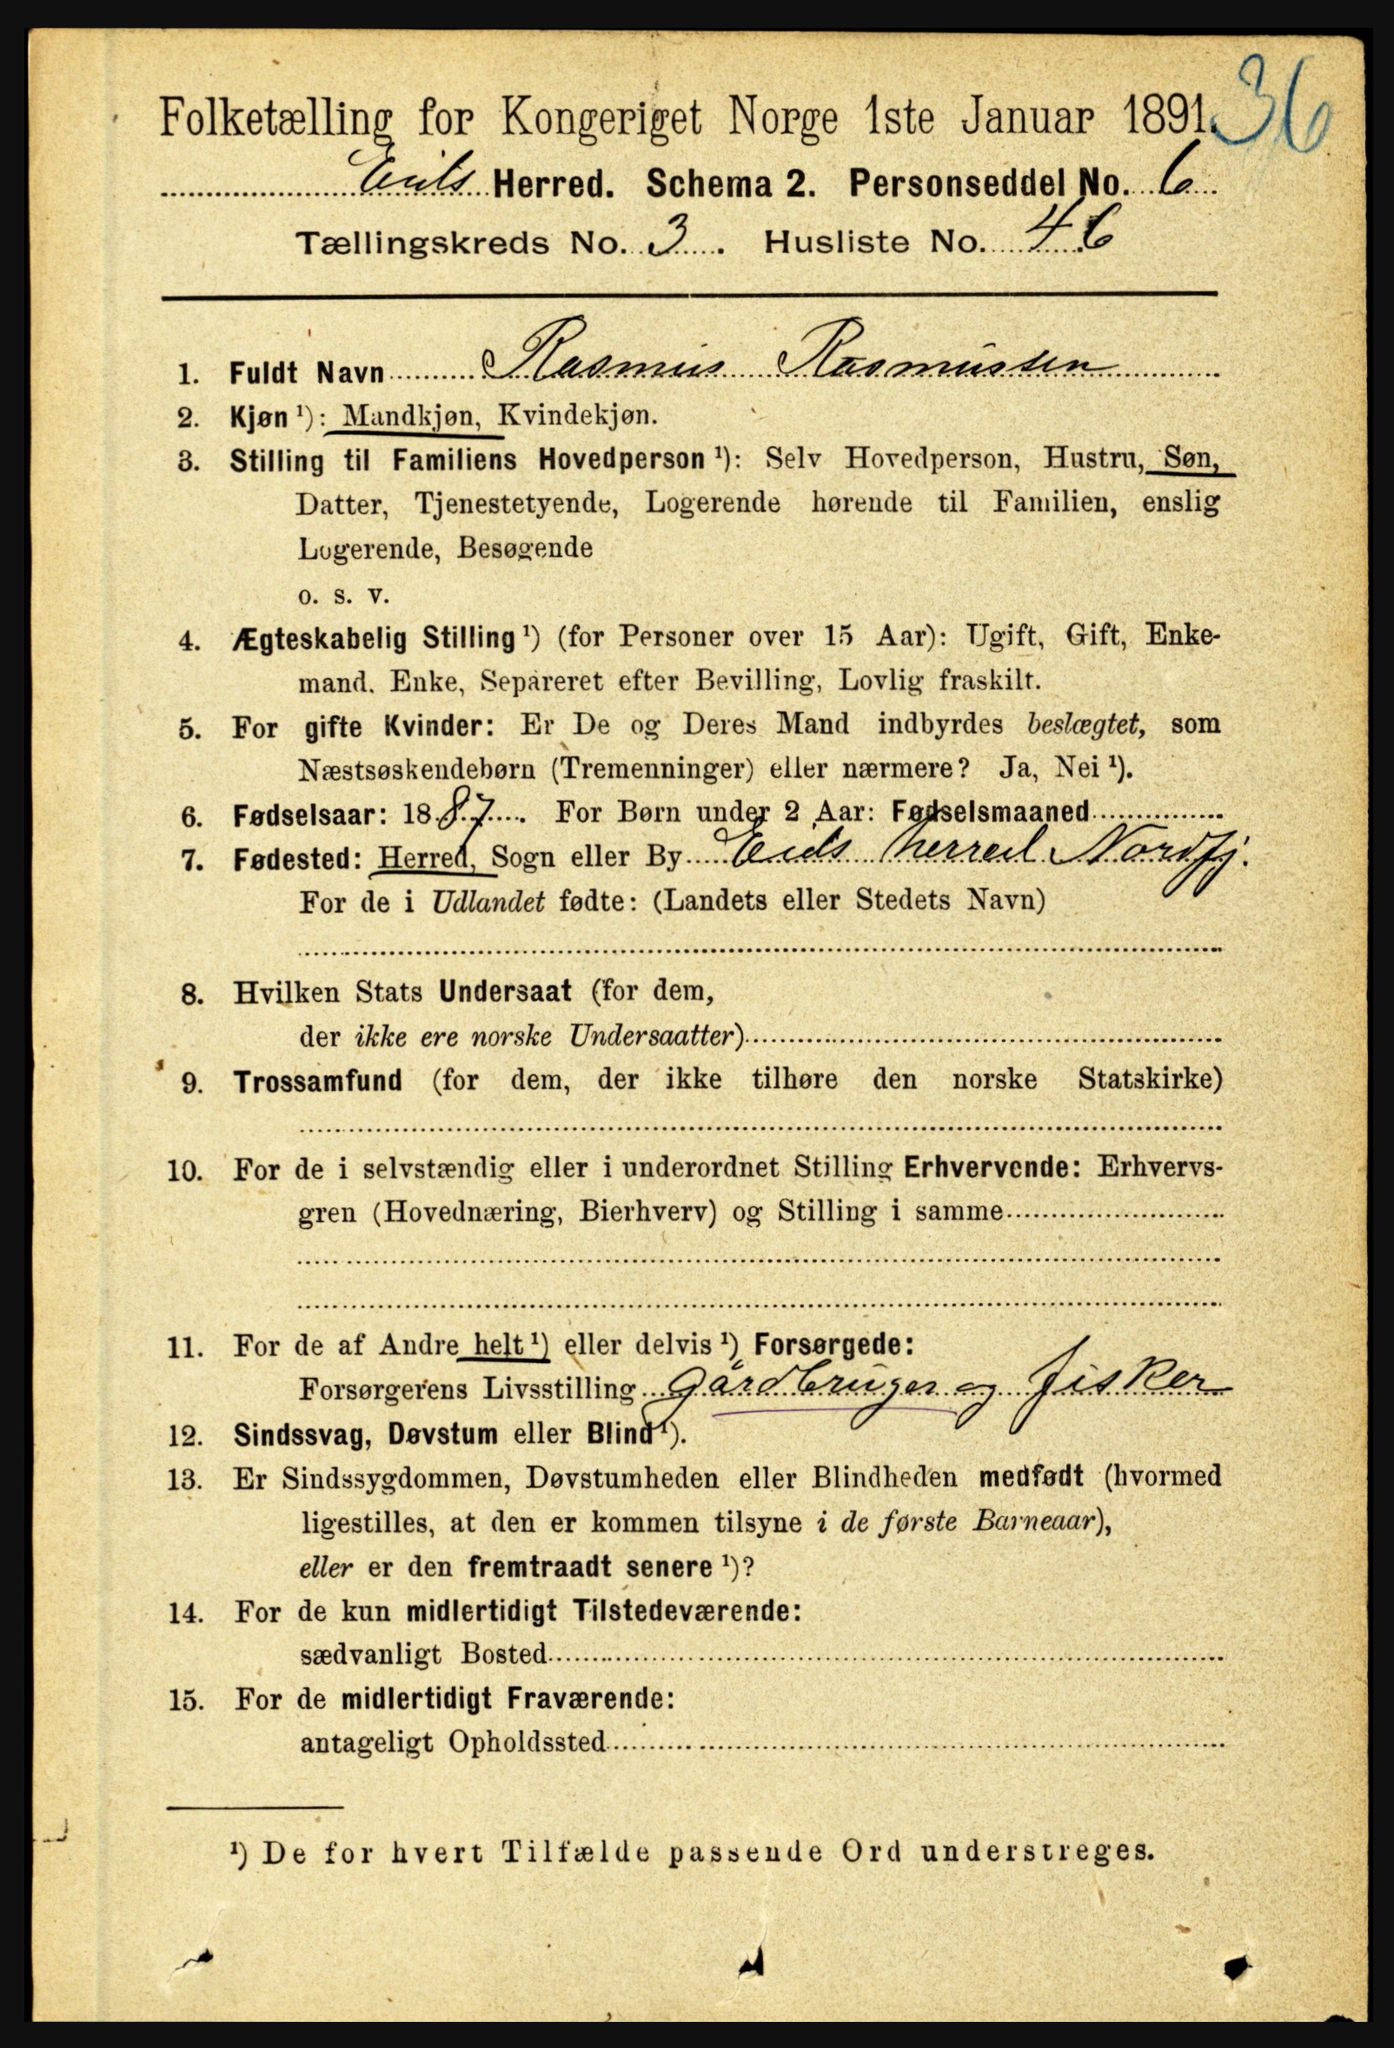 36
Folketælling for Kongeriget Norge 1ste Januar 1891.
Eids Herred. Schema 2. Personseddel No. 6
Tællingskreds No. 3. Husliste No. 46
1. Fuldt Navn Rasmus Rasmussen
2. Kjøn ¹): Mandkjøn, Kvindekjøn.
3. Stilling til Familiens Hovedperson ¹): Selv Hovedperson, Hustru, Søn,
Datter, Tjenestetyende, Logerende hørende til Familien, enslig
Logerende, Besøgende
o. s. v.
4. Ægteskabelig Stilling ¹) (for Personer over 15 Aar): Ugift, Gift, Enke-
mand. Enke, Separeret efter Bevilling, Lovlig fraskilt.
5. For gifte Kvinder: Er De og Deres Mand indbyrdes beslægtet, som
Næstsøskendebørn (Tremenninger) eller nærmere? Ja, Nei ¹).
6. Fødselsaar: 1887. For Børn under 2 Aar: Fødselsmaaned
7. Fødested: Herred, Sogn eller By Eids Herred Nordfj.
For de i Udlandet fødte: (Landets eller Stedets Navn)
8. Hvilken Stats Undersaat (for dem,
der ikke ere norske Undersaatter)
9. Trossamfund (for dem, der ikke tilhøre den norske Statskirke)
10. For de i selvstændig eller i underordnet Stilling Erhvervende: Erhvervs-
gren (Hovednæring, Bierhverv) og Stilling i samme
11. For de af Andre helt ¹) eller delvis ¹) Forsørgede:
Forsørgerens Livsstilling Gårdbruger og fisker
12. Sindssvag, Døvstum eller Blind ¹).
13. Er Sindssygdommen, Døvstumheden eller Blindheden medfødt (hvormed
ligestilles, at den er kommen tilsyne i de første Barneaar),
eller er den fremtraadt senere ¹)?
14. For de kun midlertidigt Tilstedeværende:
sædvanligt Bosted
15. For de midlertidigt Fraværende:
antageligt Opholdssted
¹) De for hvert Tilfælde passende Ord understreges.